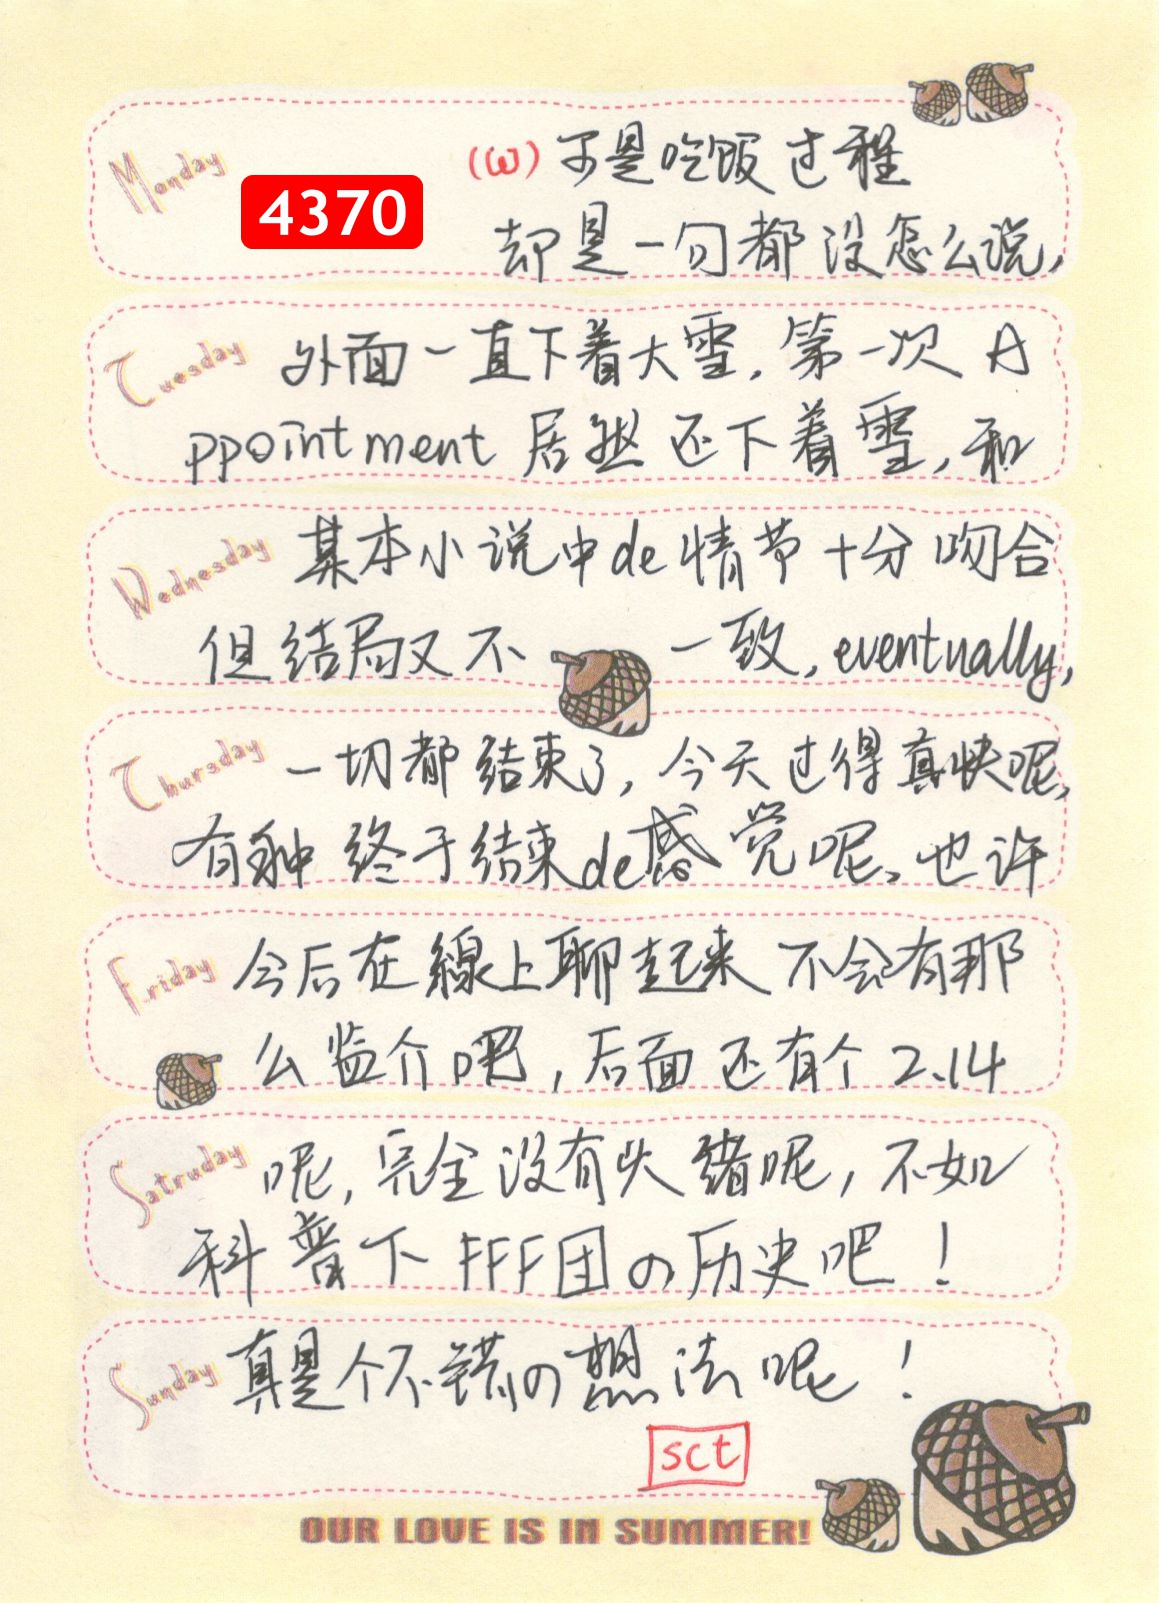 Monday
4370
(ω) 于是吃饭过程
却是一句都没怎么说,
Tuesday
外面一直下着大雪,第一次 A
ppointment 居然还下着雪,和
Wednesday
某本小说中de情节十分吻合
但结局又不一致, eventually,
Thursday
一切都结束了,今天过得真快呢,
有种终于结束de感觉呢、也许
Friday
今后在線上聊起来不会有那
么监介吧,后面还有个 2.14
Satruday
呢,完全没有头绪呢,不如
科普下 FFF团の历史吧!
Sunday
真是个不错の想法呢!
sct
OUR LOVE IS IN SUMMER!